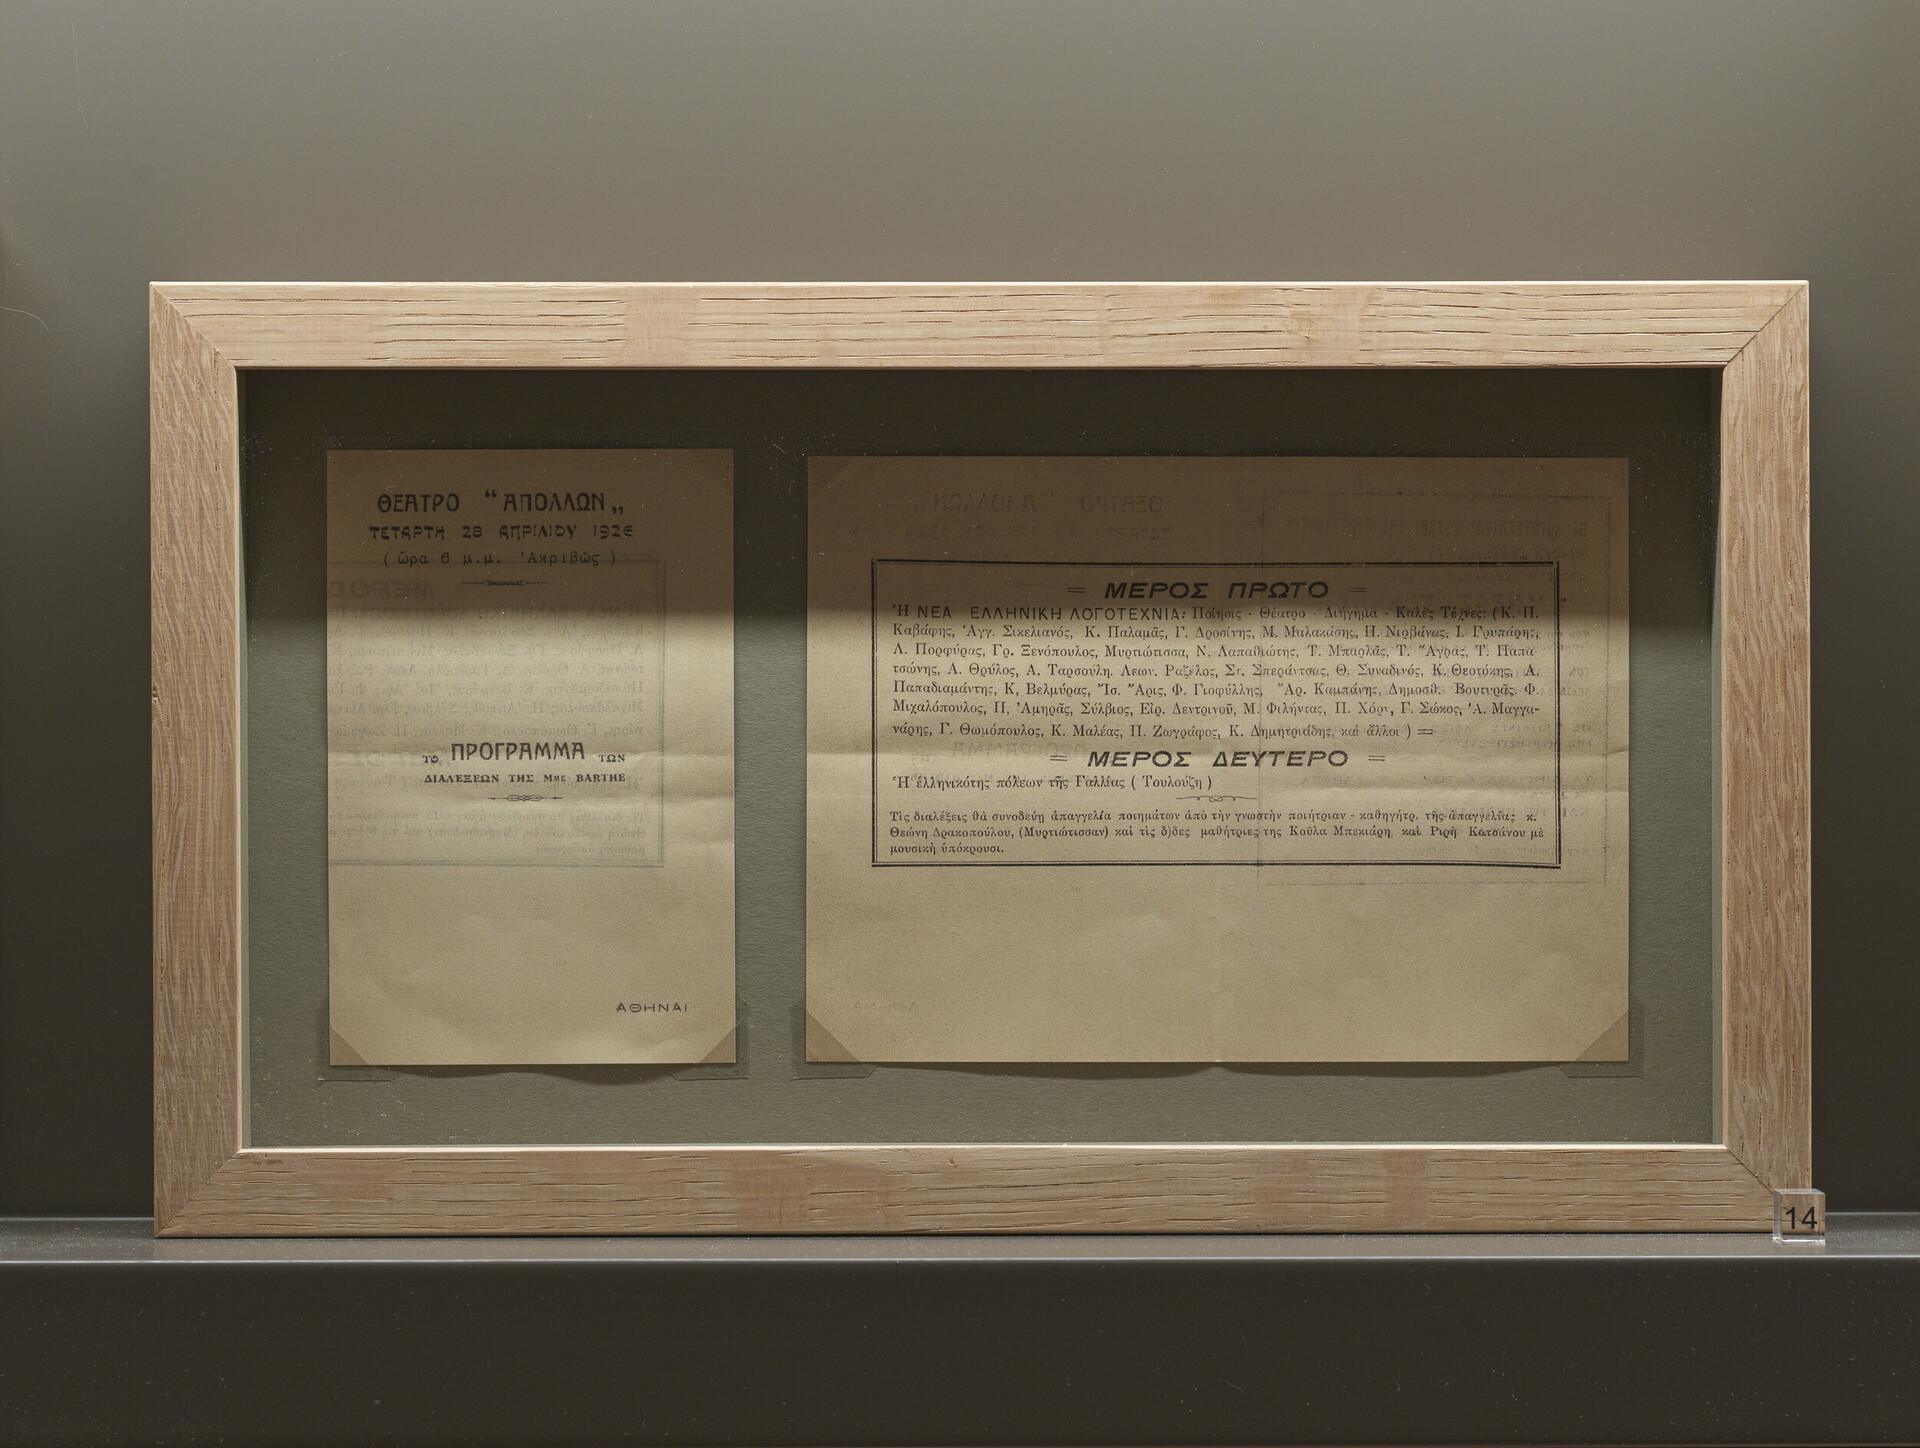 ΘΕΑΤΡΟ “ΑΠΟΛΛΩΝ„
ΤΕΤΑΡΤΗ 28 ΑΠΡΙΛΙΟΥ 1926
( ὥρα 6 μ.μ. Ἀκριβῶς )
ΤΟ ΠΡΟΓΡΑΜΜΑ ΤΩΝ
ΔΙΑΛΕΞΕΩΝ ΤΗΣ ΜΜΕ BARTHE
ΑΘΗΝΑΙ
= ΜΕΡΟΣ ΠΡΩΤΟ =
Ἡ ΝΕΑ ΕΛΛΗΝΙΚΗ ΛΟΓΟΤΕΧΝΙΑ: Ποίησις - Θέατρο - Διήγημα - Καλὲς Τέχνες: (Κ. Π.
Καβάφης, Ἀγγ. Σικελιανός, Κ. Παλαμᾶς, Γ. Δροσίνης, Μ. Μαλακάσης, Π. Νιρβάνας, Ι. Γρυπάρης,
Λ. Πορφύρας, Γρ. Ξενόπουλος, Μυρτιώτισσα, Ν. Λαπαθιώτης, Τ. Μπαρλᾶς, Τ. Ἄγρας, Τ. Παπα-
τσώνης, Α. Θρύλος, Α. Ταρσούλη, Λεων. Ραζέλος, Στ. Σπεράντσας, Θ. Συναδινός, Κ. Θεοτόκης, Α.
Παπαδιαμάντης, Κ, Βελμύρας, Ἴσ. Ἄρις, Φ. Γιοφύλλης, Ἄρ. Καμπάνης, Δημοσθ. Βουτυρᾶς. Φ.
Μιχαλόπουλος, Π, Ἀμηρᾶς, Σύλβιος, Εἰρ. Δεντρινοῦ, Μ. Φιλήντας, Π. Χόρν, Γ. Σῶκος, Ἀ. Μαγγα-
νάρης, Γ. Θωμόπουλος, Κ. Μαλέας, Π. Ζωγράφος, Κ. Δημητριάδης, καὶ ἄλλοι ) =
= ΜΕΡΟΣ ΔΕΥΤΕΡΟ =
Ἡ ἑλληνικότης πόλεων τῆς Γαλλίας ( Τουλούζη )
Τὶς διαλέξεις θὰ συνοδεύῃ ἀπαγγελία ποιημάτων ἀπὸ τὴν γνωστὴν ποιήτριαν - καθηγήτρ. τῆς ἀπαγγελίας κ.
Θεώνη Δρακοπούλου, (Μυρτιώτισσαν) καὶ τὶς δ)δες μαθήτριες της Κοῦλα Μπεκιάρη, καὶ Ριρὴ Κατσάνου μὲ
μουσικὴ ὑπόκρουσι.
14